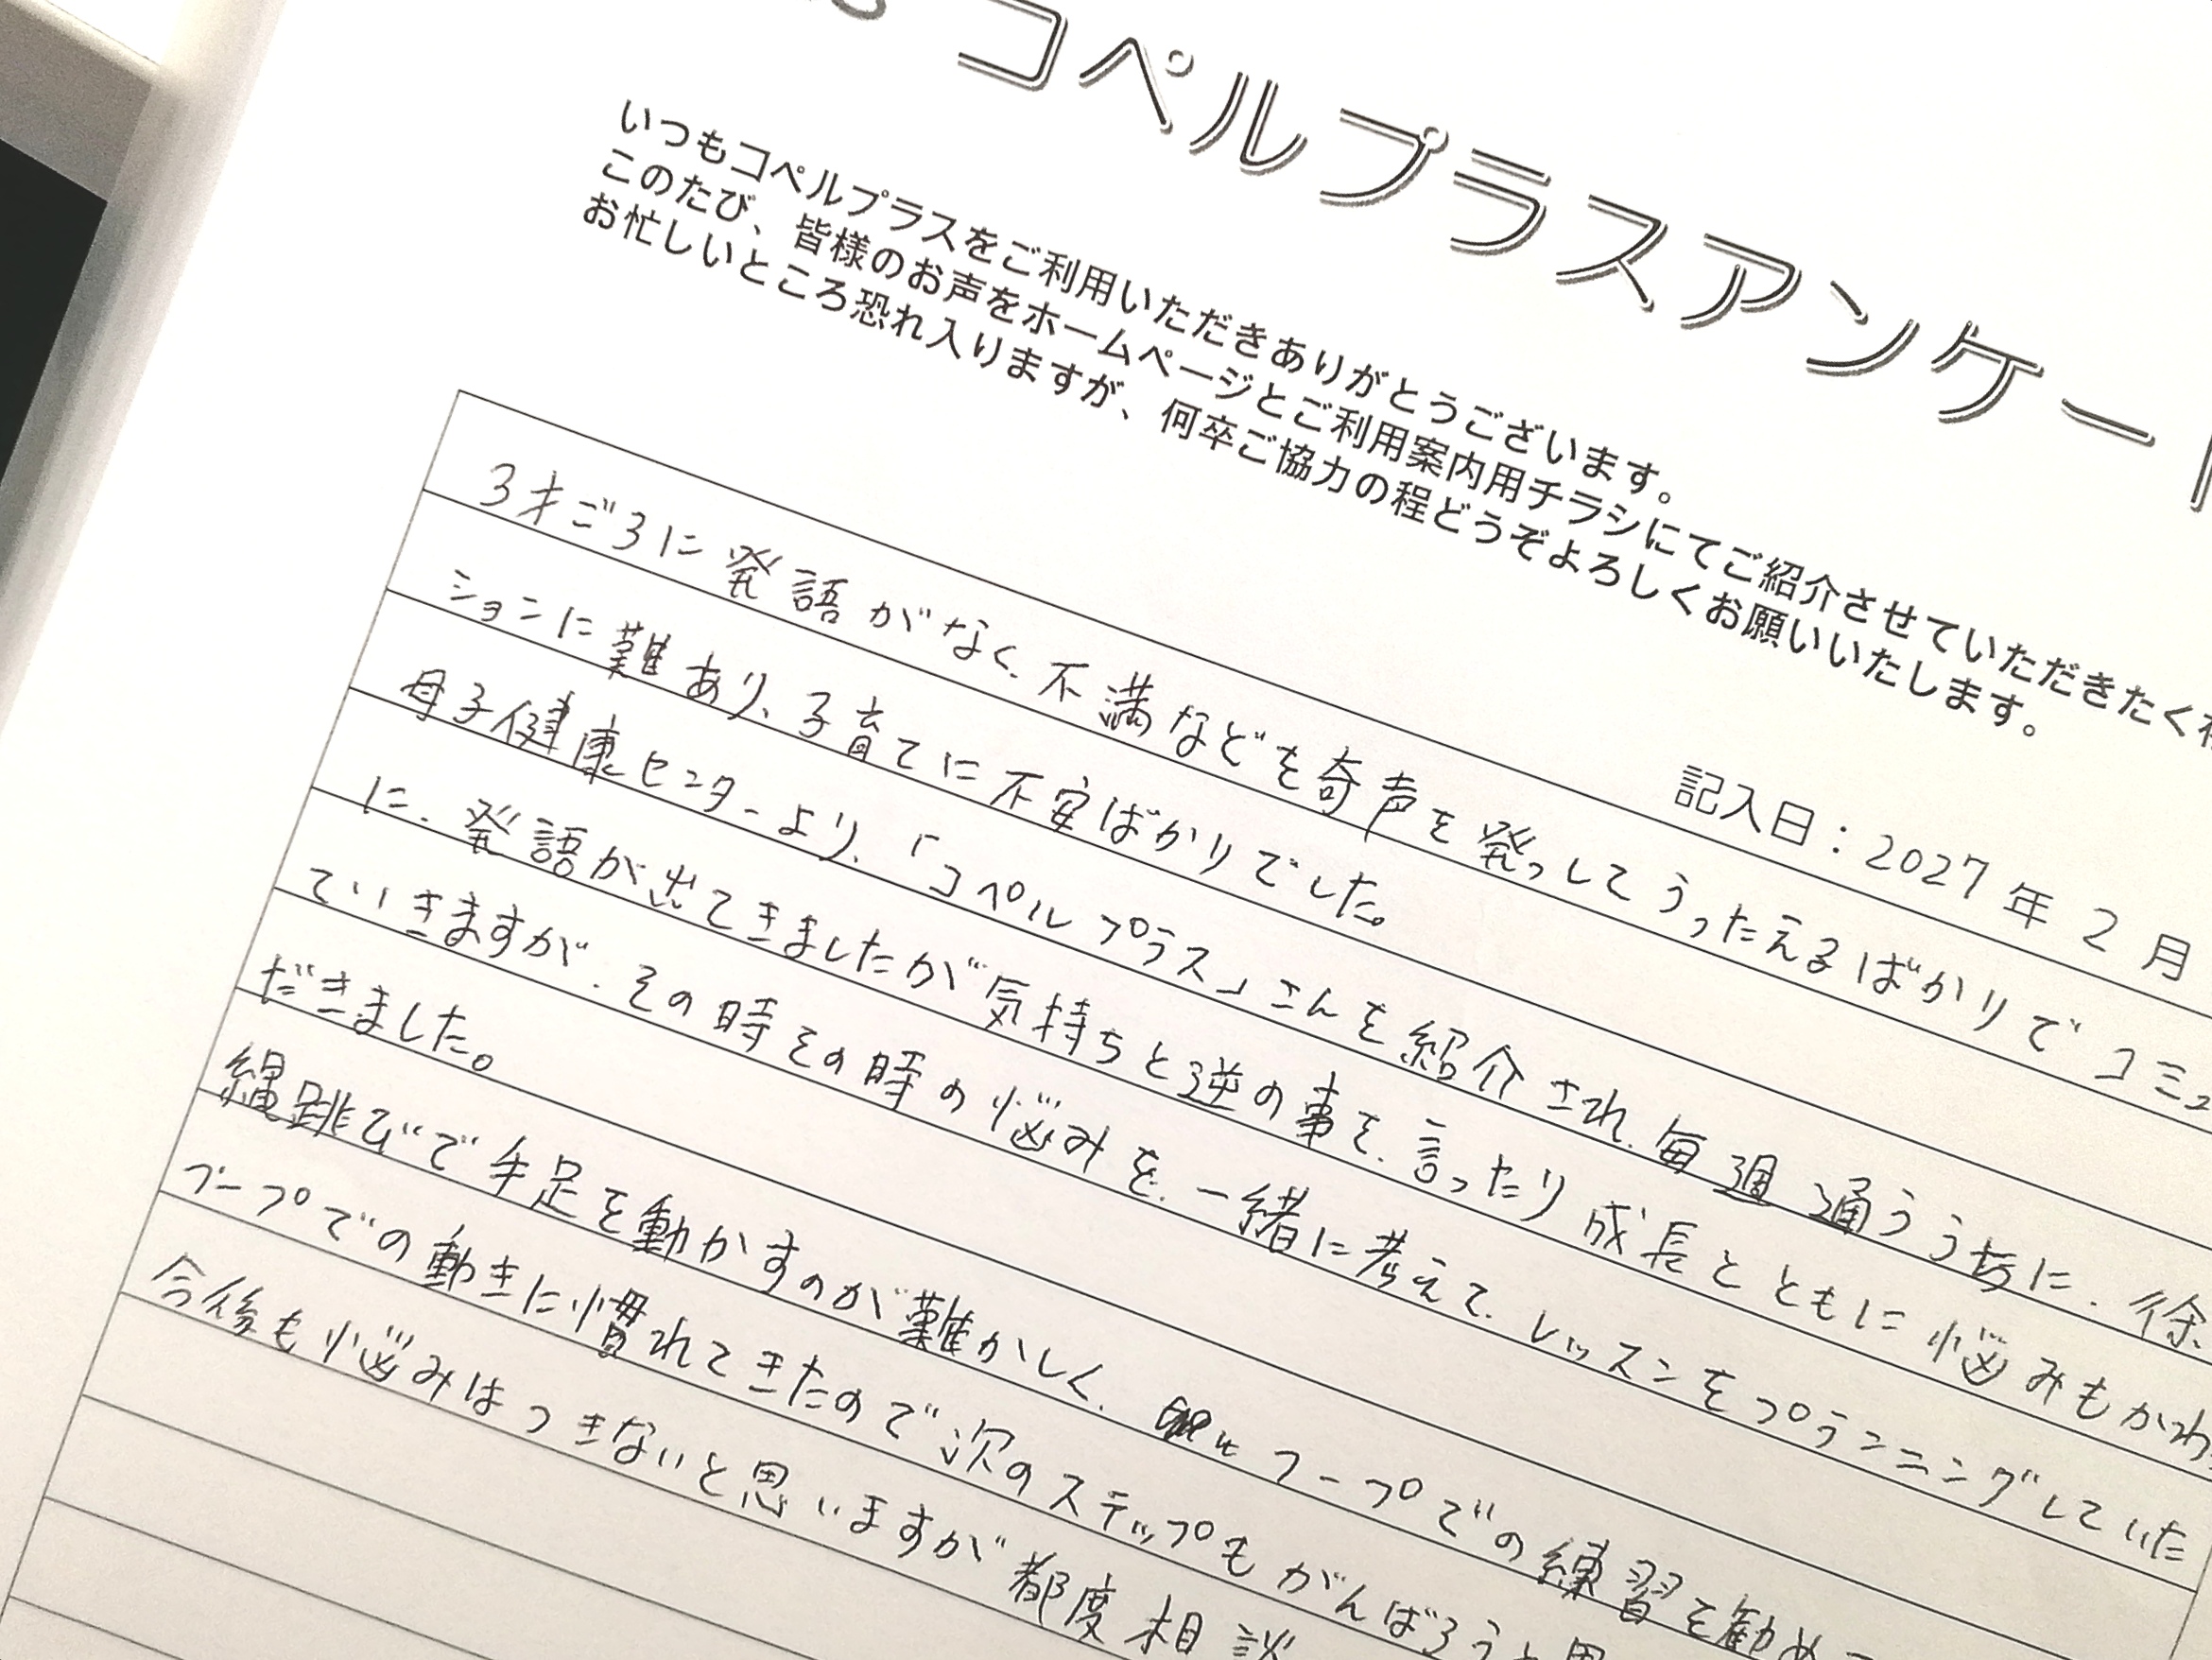 コペルプラスアンケート
いつもコペルプラスをご利用いただきありがとうございます。
このたび、皆様のお声をホームページとご利用案内用チラシにてご紹介させていただきたく
お忙しいところ恐れ入りますが、何卒ご協力の程どうぞよろしくお願いいたします。
記入日：2027年2月
3才ごろに発語がなく、不満などを奇声を発っしてうったえるばかりでコミュ
ションに難あり、子育てに不安ばかりでした。
母子健康センターより、「コペルプラス」さんを紹介され、毎週通ううちに、徐
に、発語が出てきましたが気持ちと逆の事を、言ったり成長とともに悩みもかわ
ていきますが、その時その時の悩みを、一緒に考えて、レッスンをプランニングしていた
だきました。
縄跳びで手足を動かすのが難かしく、フープでの練習を勧め
フープでの動きに慣れてきたので次のステップもがんばろうと思
今後も悩みはつきないと思いますが都度相談